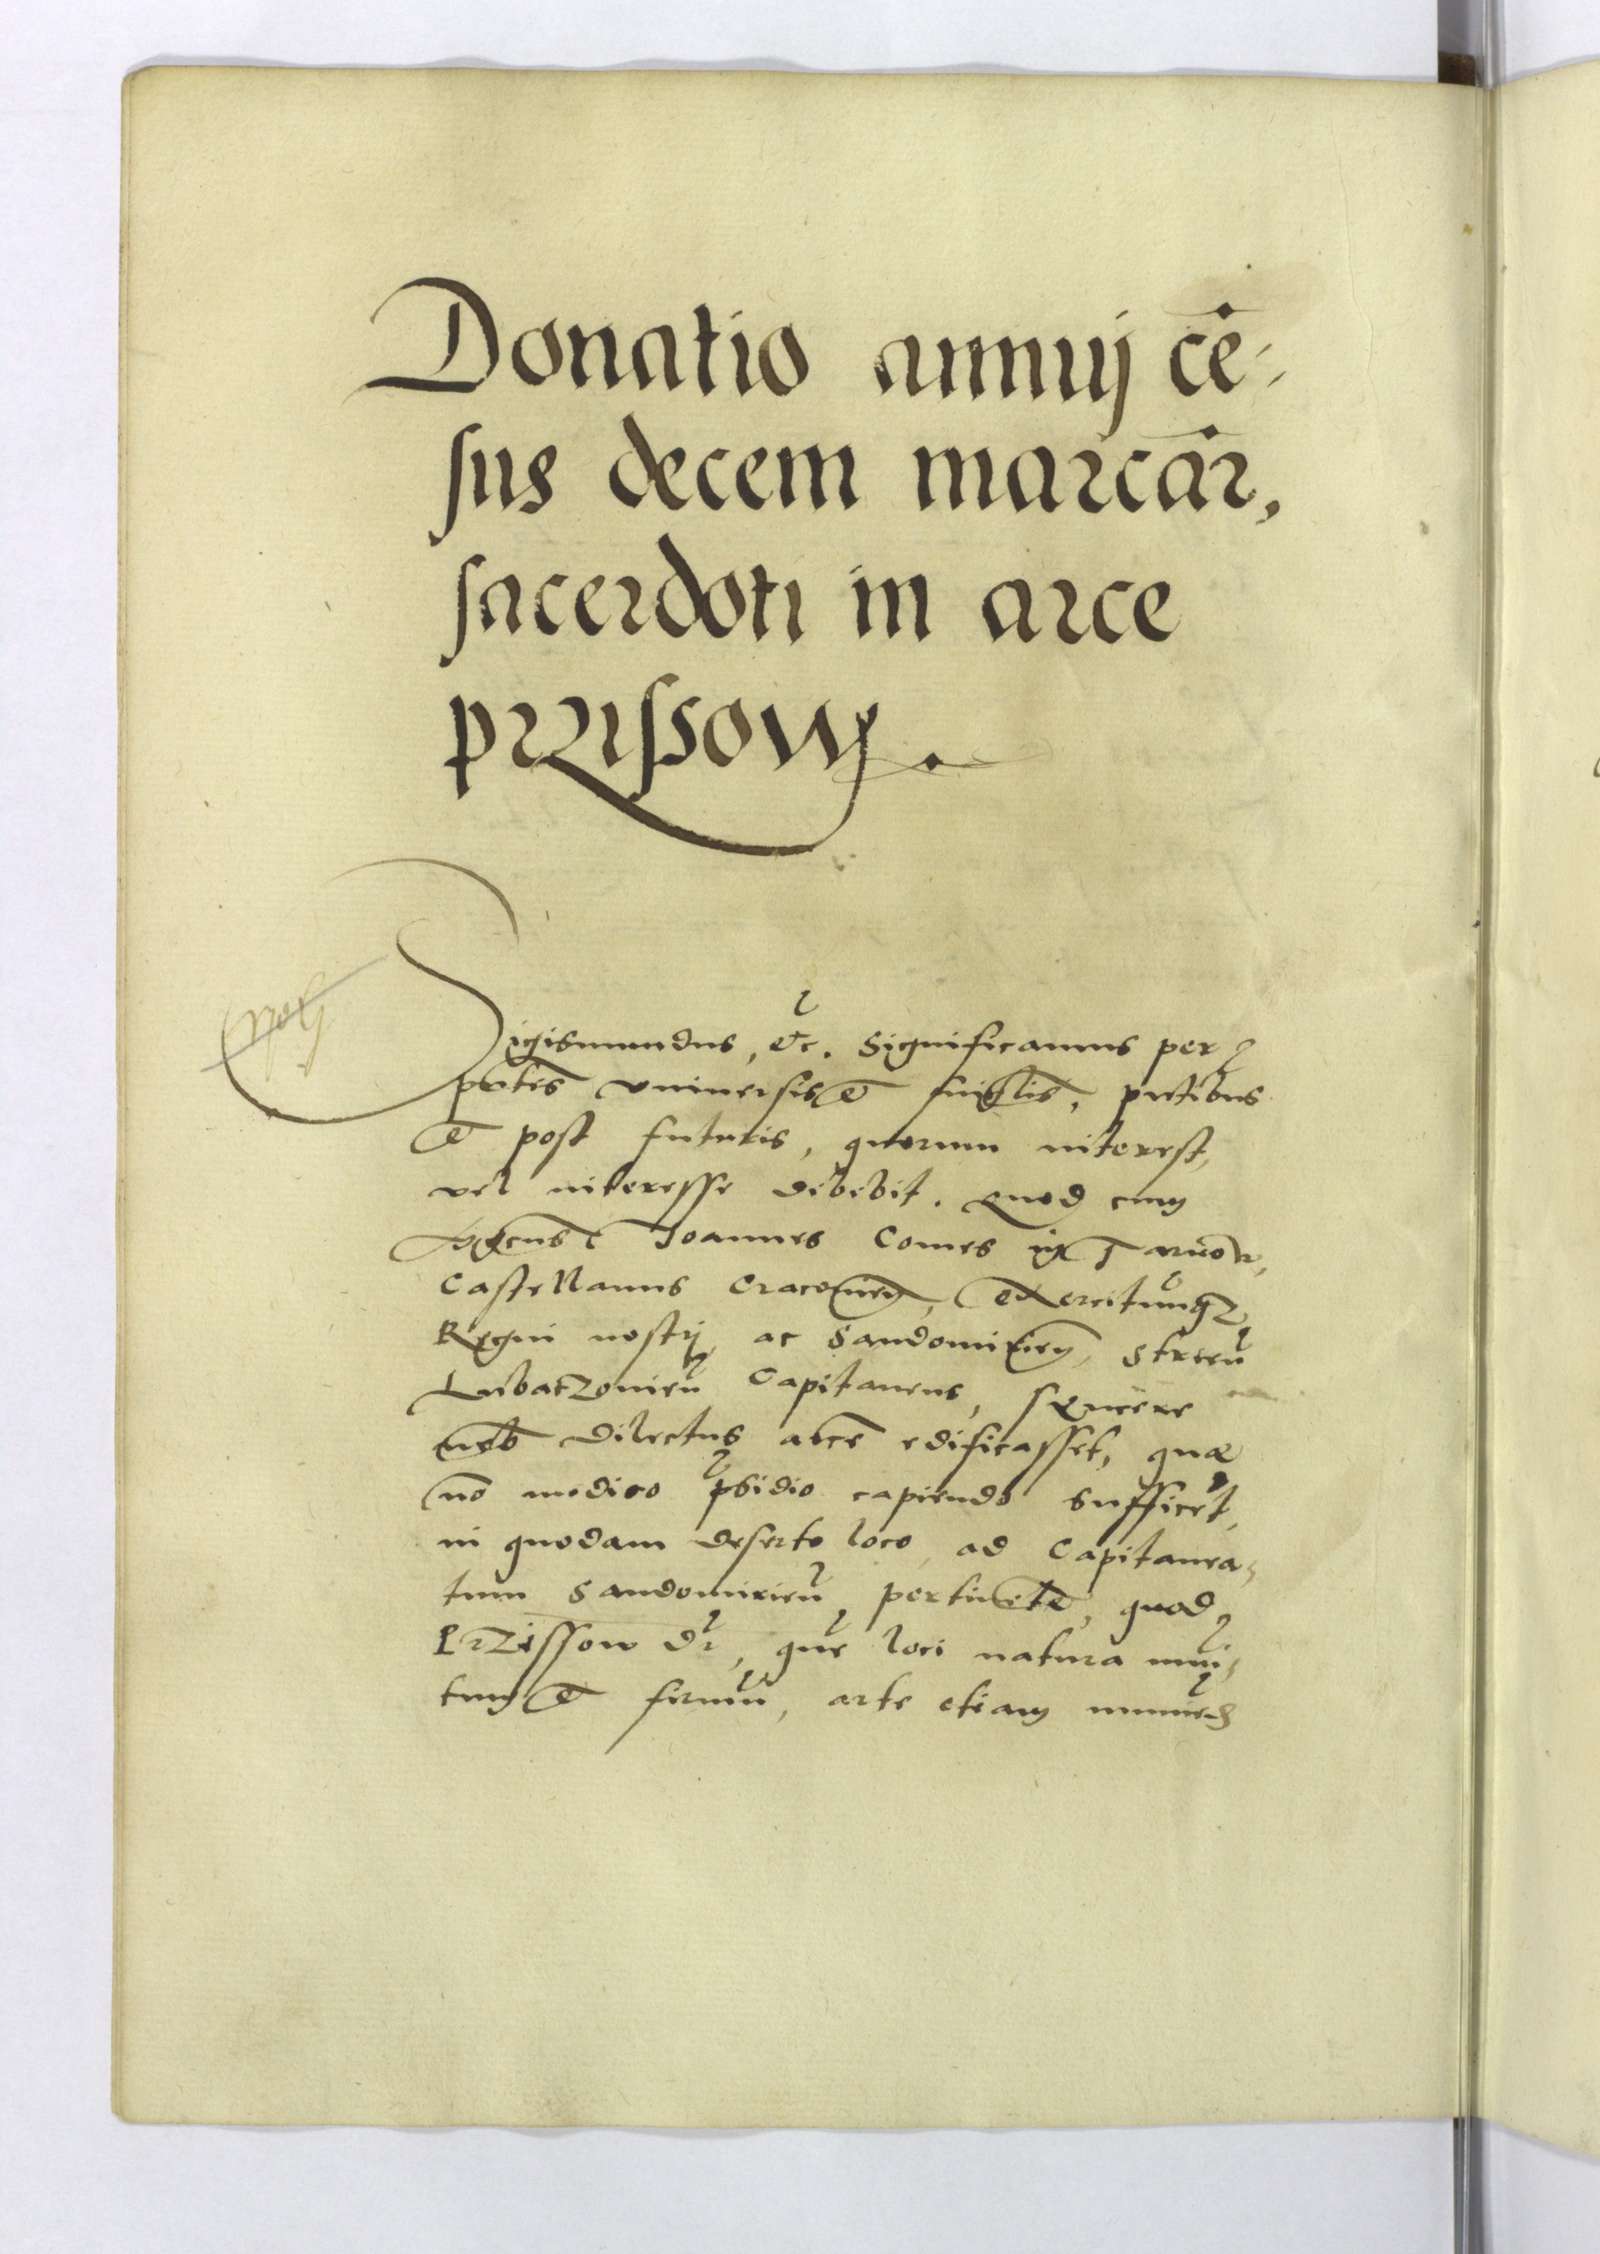 Donatio annuij cē-
sus decem marcar̄,
sacerdoti in arce
przissow.
Sigismundus, &c. Significamus per
pn̄tes vniuersis et singl̄is, pn̄tibus
et post futuris, quorum interest,
vel intererit debebit. Quod cum
Joannes Comes in Tarnow,
Castellanus Cracouien̄, exercituumq3
Regni nostri, ac Sandomirien̄, Strien̄
Lubatzouien̄ Capitaneus, syncere
nob̄ dilectus arcē edificasset, quæ
nō modico p̄sidio capiendo sufficeret,
in quodam deserto loco, ad Capitanea-
tum Sandomirien̄ pertinētē, quod
Przissow dr̄, quē loci natura muni-
tum et firmū, arte etiam